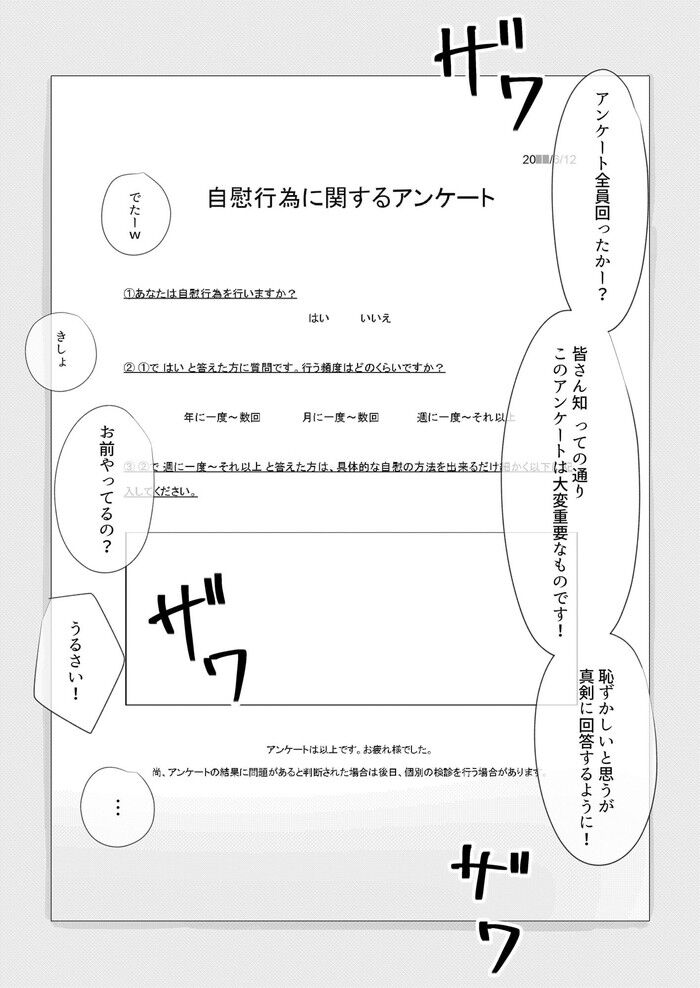 ザワ
アンケート全員回ったかー?
20■■/3/12
自慰行為に関するアンケート
でたーw
①あなたは自慰行為を行いますか?
はい いいえ
きしょ
② ①で はい と答えた方に質問です。行う頻度はどのくらいですか?
年に一度～数回 月に一度～数回 週に一度～それ以上
皆さん知 っての通り
このアンケートは大変重要なものです!
お前やってるの?
③ ②で 週に一度～それ以上 と答えた方は、具体的な自慰の方法を出来るだけ細かく以下に記
入してください。
ザワ
うるさい!
恥ずかしいと思うが
真剣に回答するように!
アンケートは以上です。お疲れ様でした。
尚、アンケートの結果に問題があると判断された場合は後日、個別の検診を行う場合があります。
…
ザワ